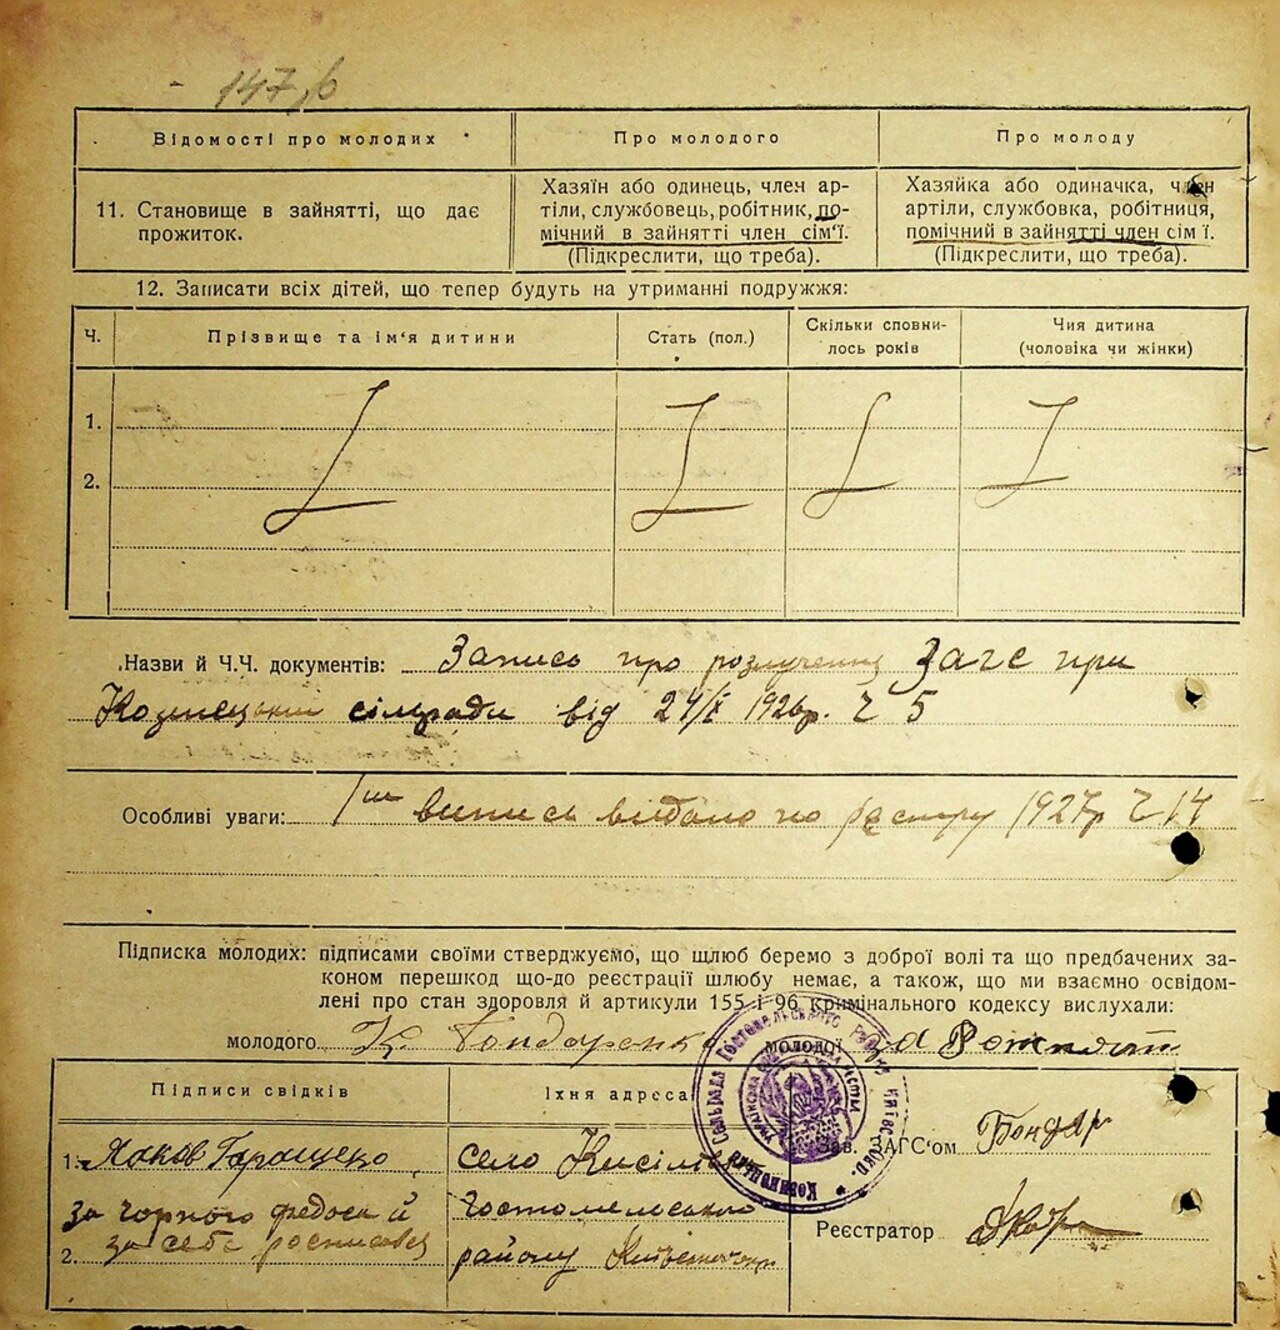 147, б
Відомості про молодих
Про молодого
Про молоду
11. Становище в зайнятті, що дає
прожиток.
Хазяїн або одинець, член ар-
тіли, службовець, робітник, по-
мічний в зайнятті член сім'ї.
(Підкреслити, що треба).
Хазяйка або одиначка, член
артіли, службовка, робітниця,
помічний в зайнятті член сім'ї.
(Підкреслити, що треба).
12. Записати всіх дітей, що тепер будуть на утриманні подружжя:
Ч.
Прізвище та ім'я дитини
Стать (пол.)
Скільки сповни-
лось років
Чия дитина
(чоловіка чи жінки)
1.
2.
Назви й Ч.Ч. документів: Запись про розлучення Загс при
сільради від 24/X 1926р. Ч 5
Особливі уваги: 1ш випись видано по реєстру 1927р Ч 14
Підписка молодих: підписами своїми стверджуємо, що щлюб беремо з доброї волі та що предбачених за-
коном перешкод що-до реєстрації шлюбу немає, а також, що ми взаємно освідом-
лені про стан здоров'я й артикули 155 і 96 кримінального кодексу вислухали:
молодого К. Бондаренко молодої за
Підписи свідків
Їхня адреса
1. Яков Гаращенко
за чорного федоса й
2. за себе росписався
село
Гостомельского
району
Зав. ЗАГС'ом Бондар
Реєстратор